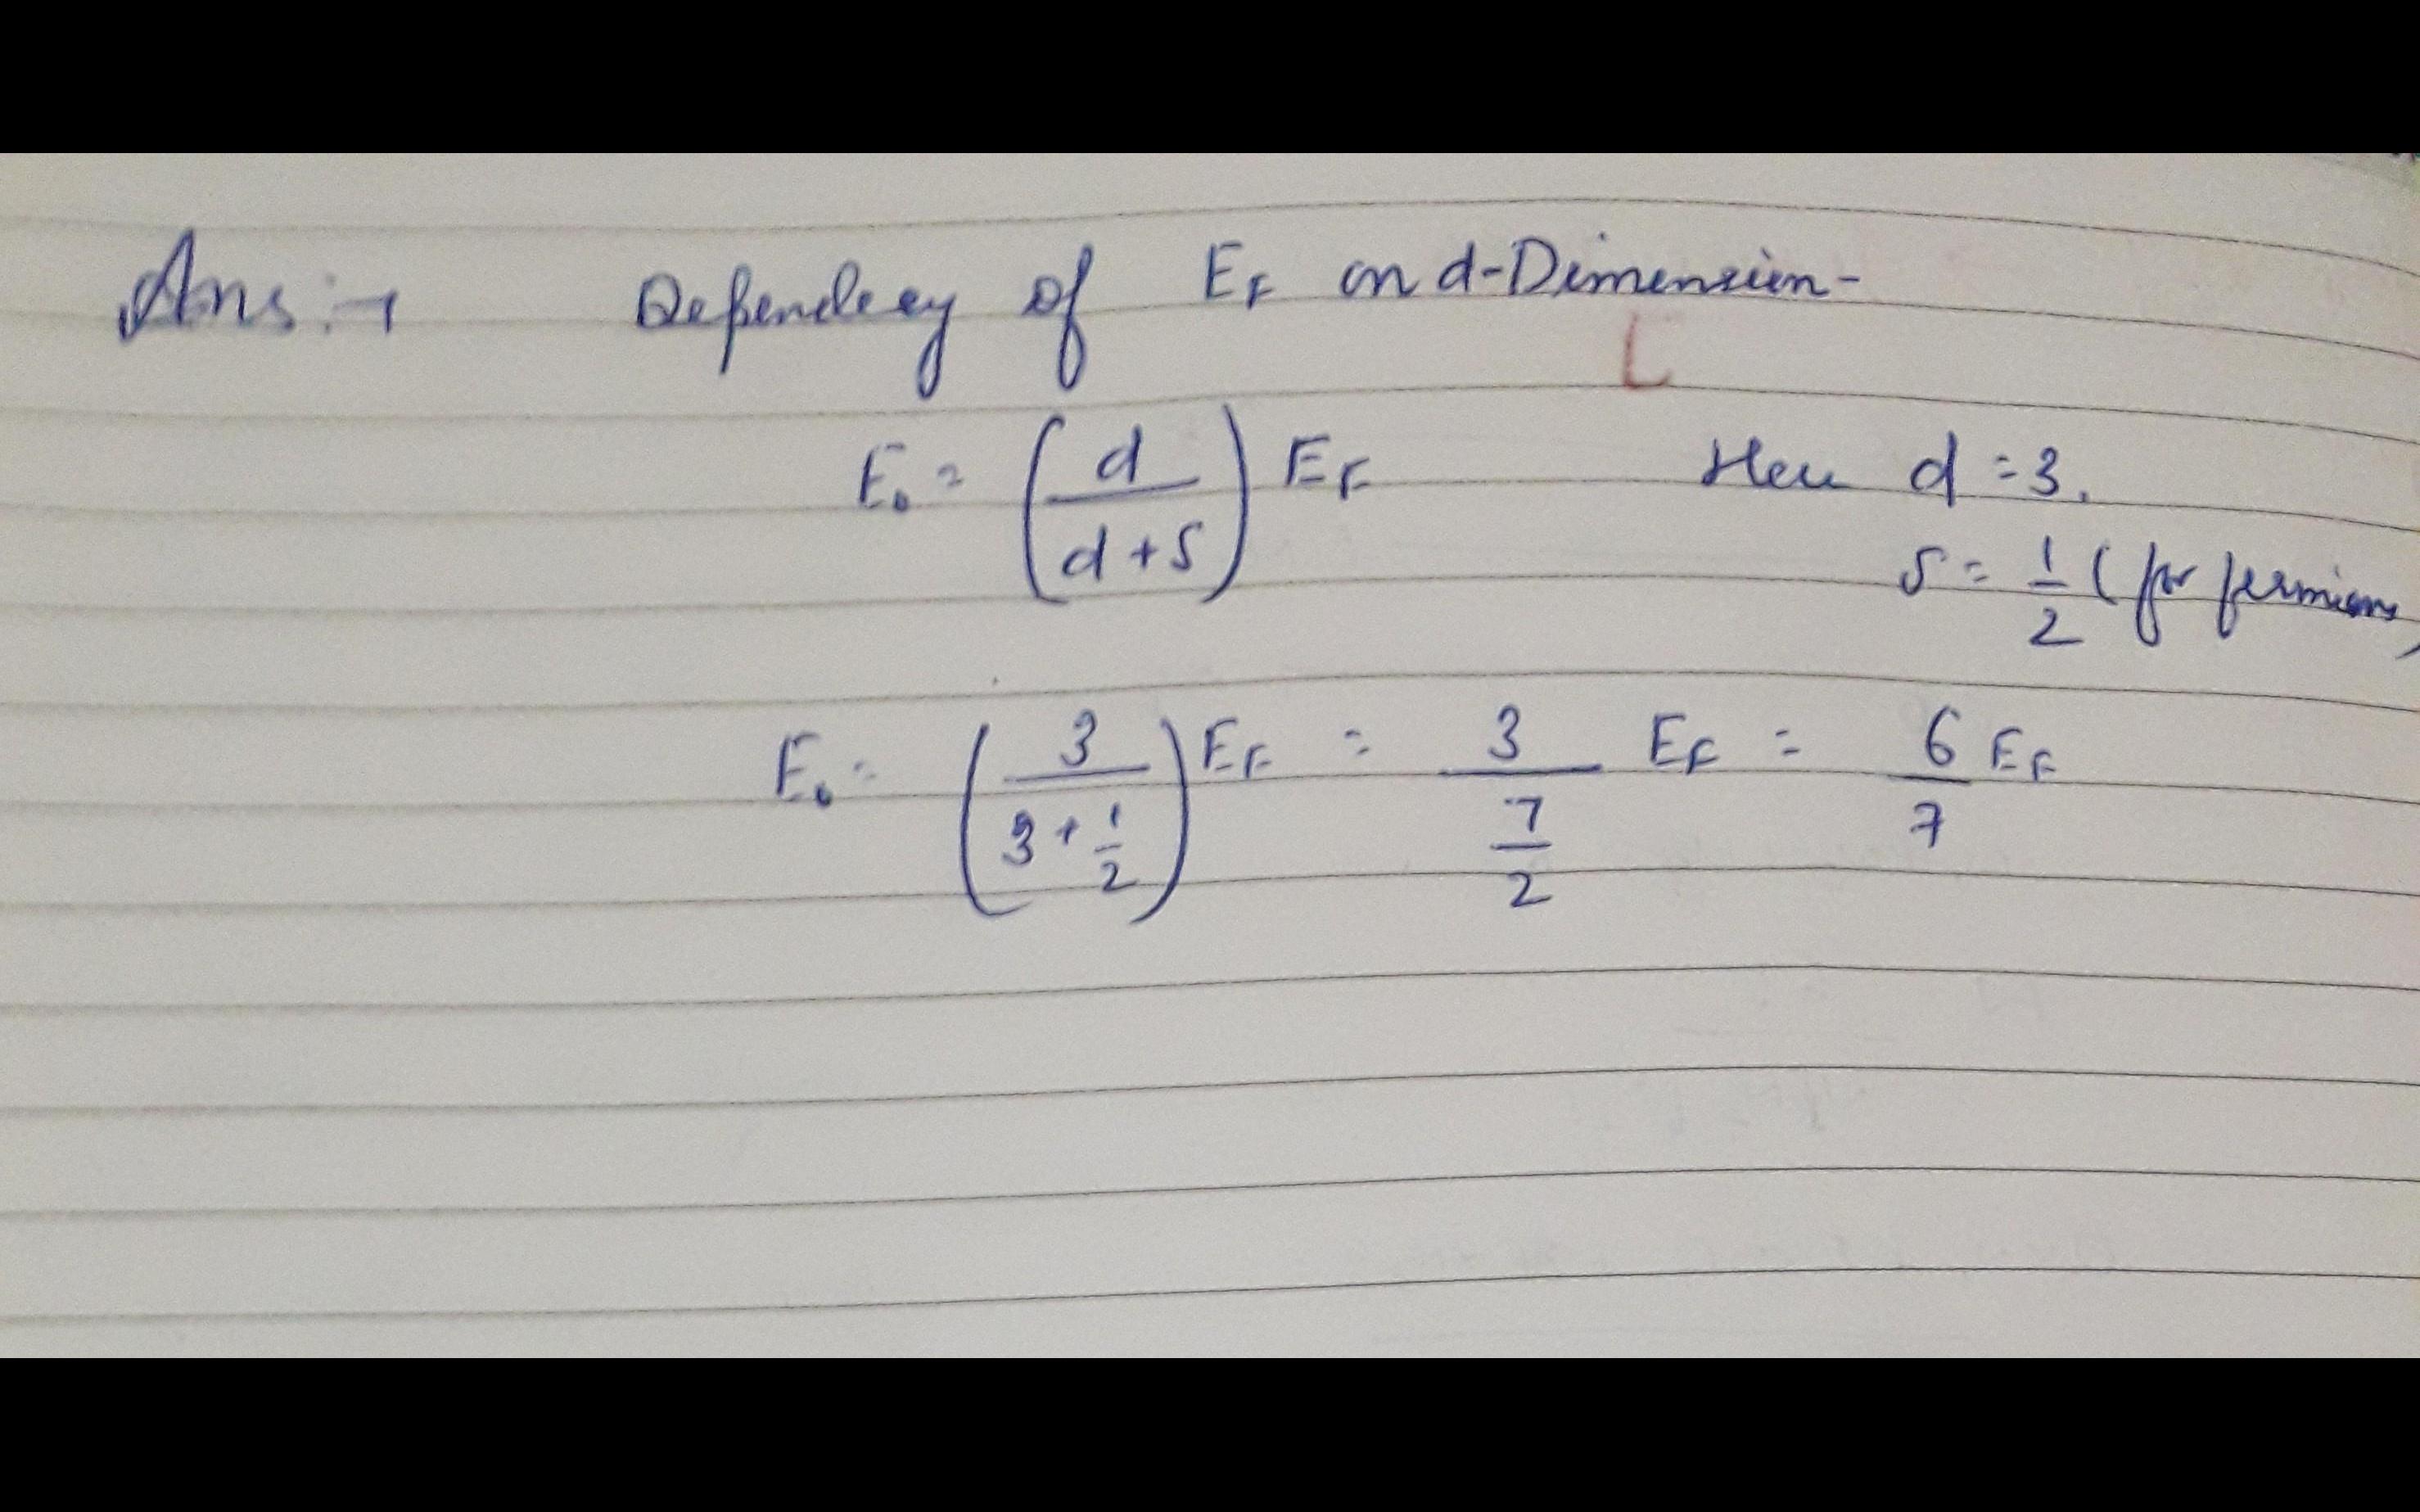 Ans:→ Dependency of E_F on d-Dimension-
E_0 = (d / (d+s)) E_F Here d = 3.
s = 1/2 (for fermions)
E_0 = (3 / (3 + 1/2)) E_F = 3 / (7/2) E_F = 6/7 E_F